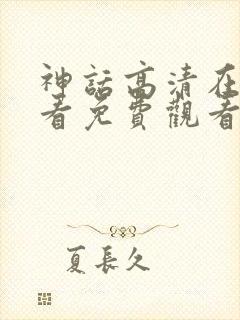 神話高清在
看免費觀看
夏長久